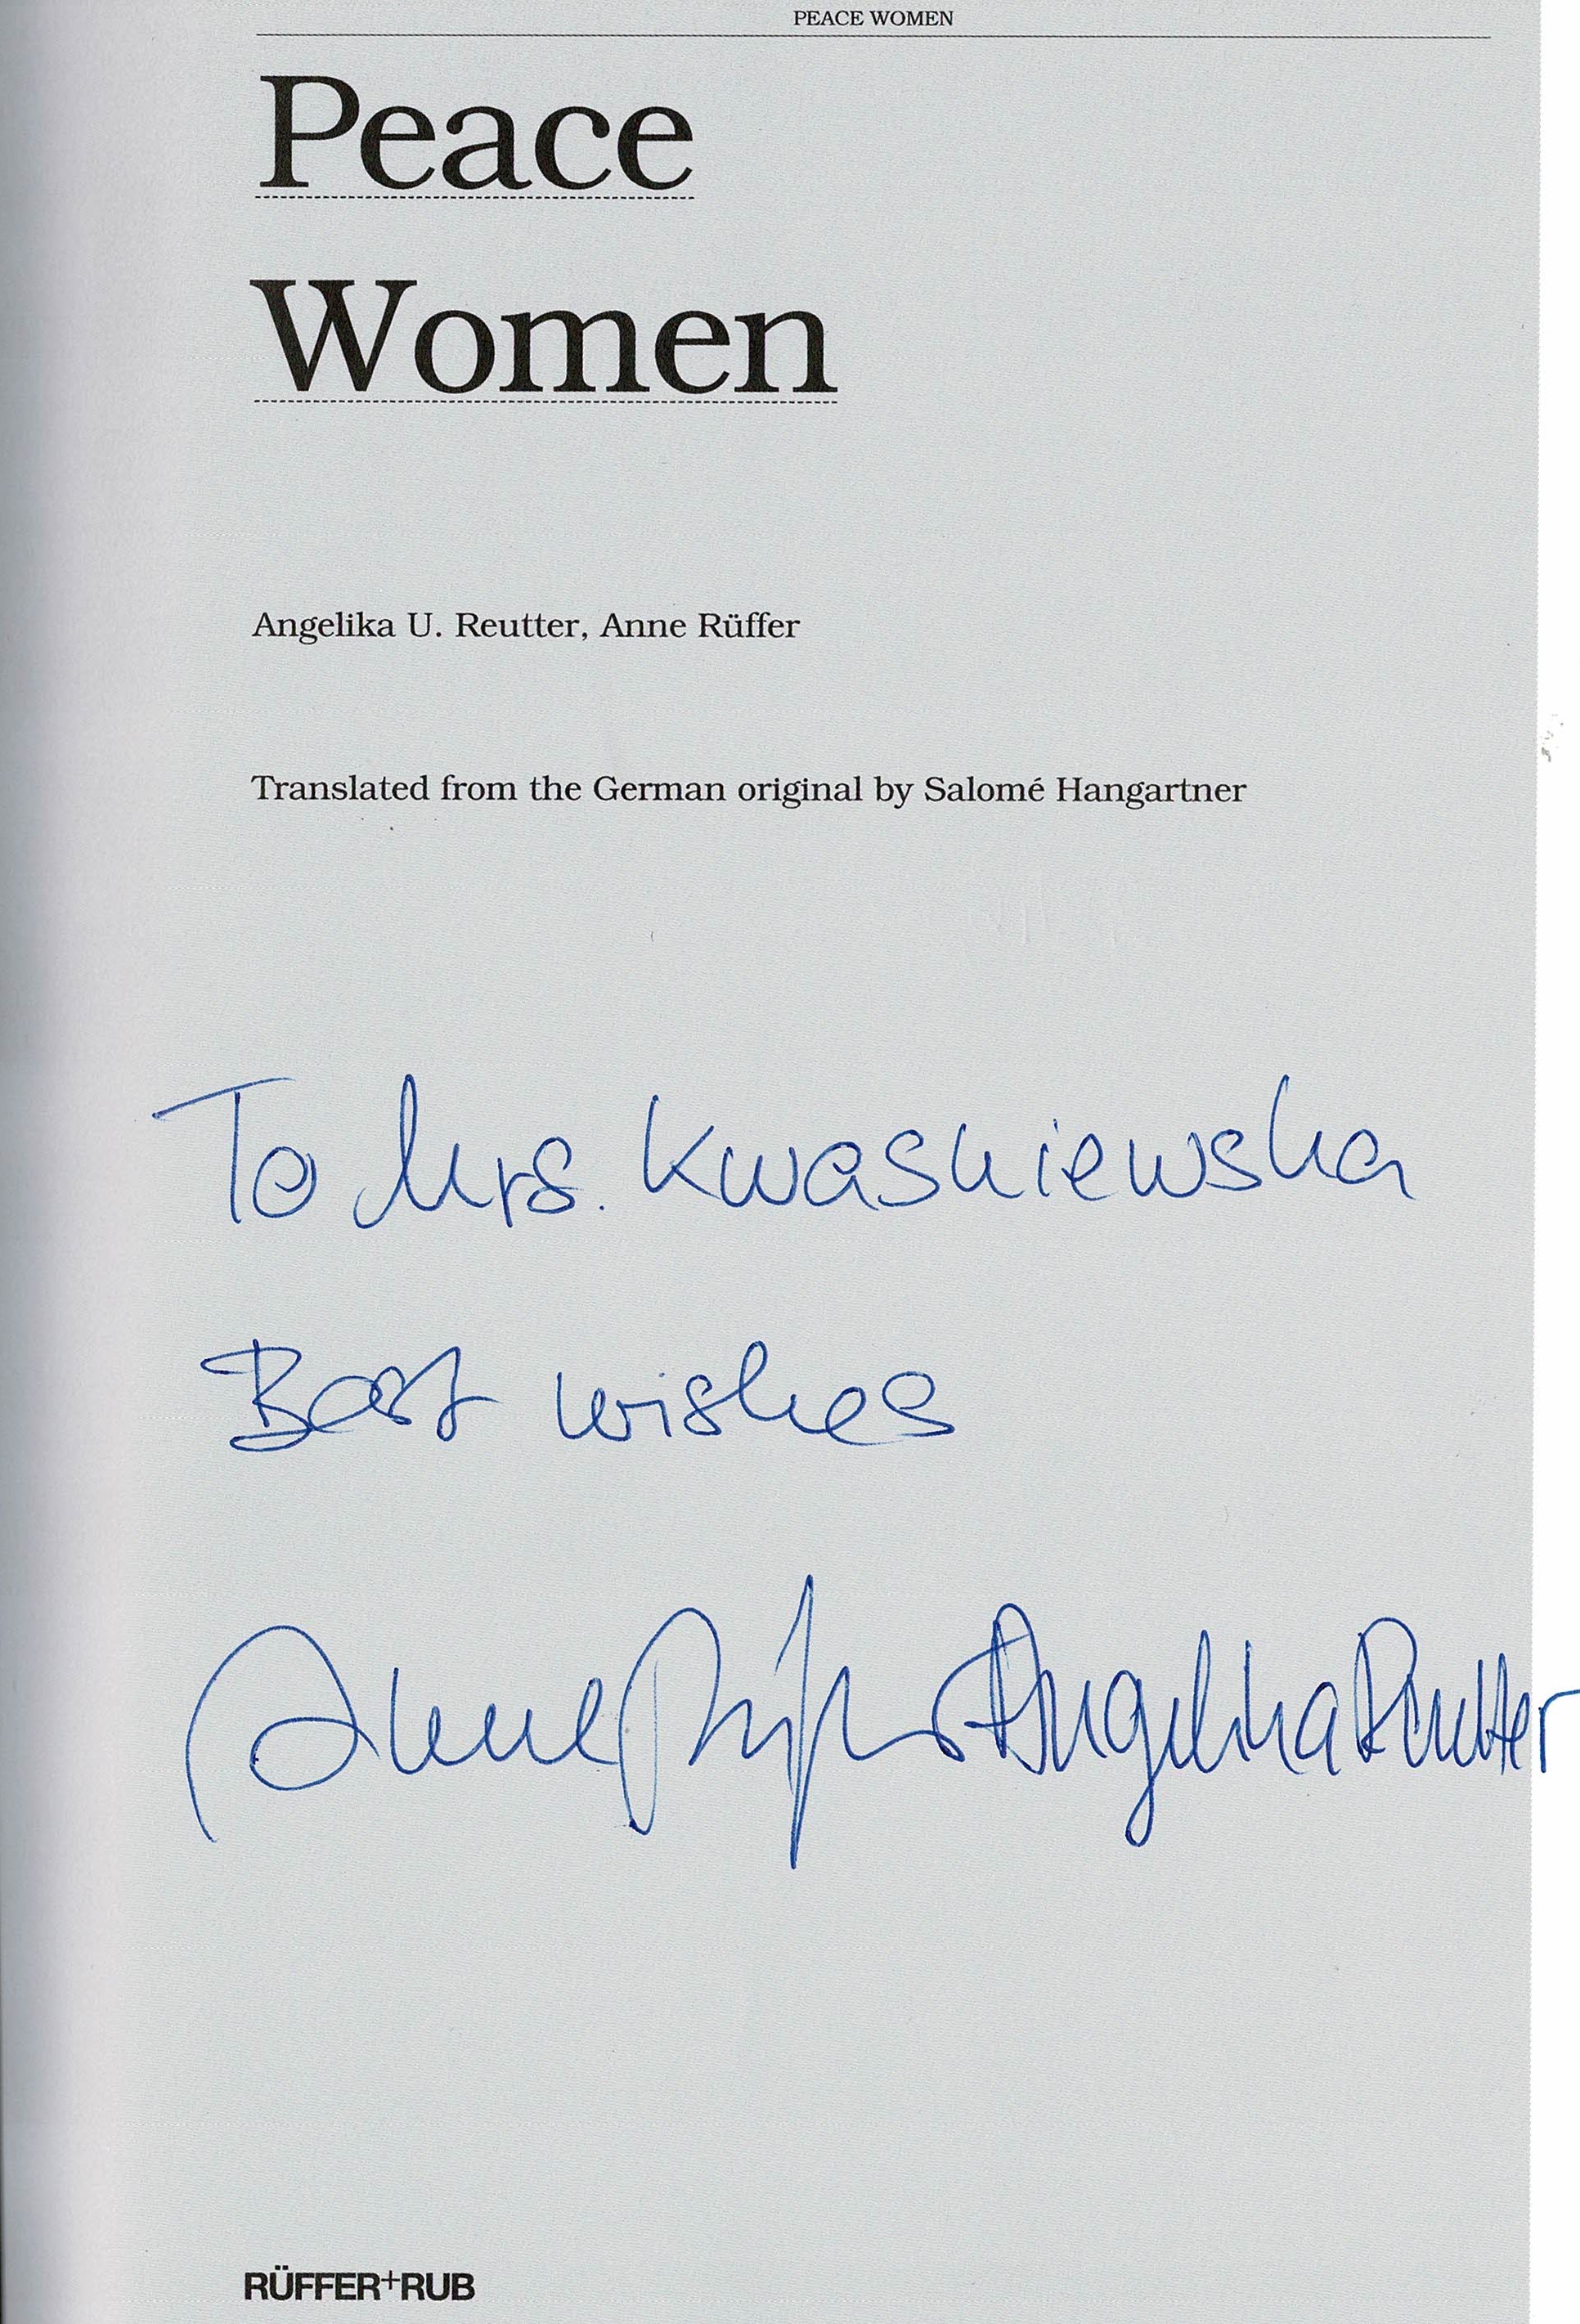 PEACE WOMEN
Peace
Women
Angelika U. Reutter, Anne Rüffer
Translated from the German original by Salomé Hangartner
To Mrs. Kwasniewska
Best wishes
Anne Rüffer Angelika Reutter
RÜFFER+RUB